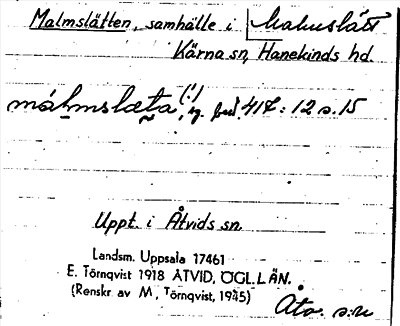 Malmslätten, samhälle i Malmslätt
Kärna sn, Hanekinds hd.
målmslæta (!), 417: 12 s. 15
Uppt. i Åtvids sn.
Landsm. Uppsala 17461
E. Törnqvist 1918 ÅTVID, ÖGL. LÄN.
(Renskr. av M. Törnqvist, 1945)
Åtv. s:n